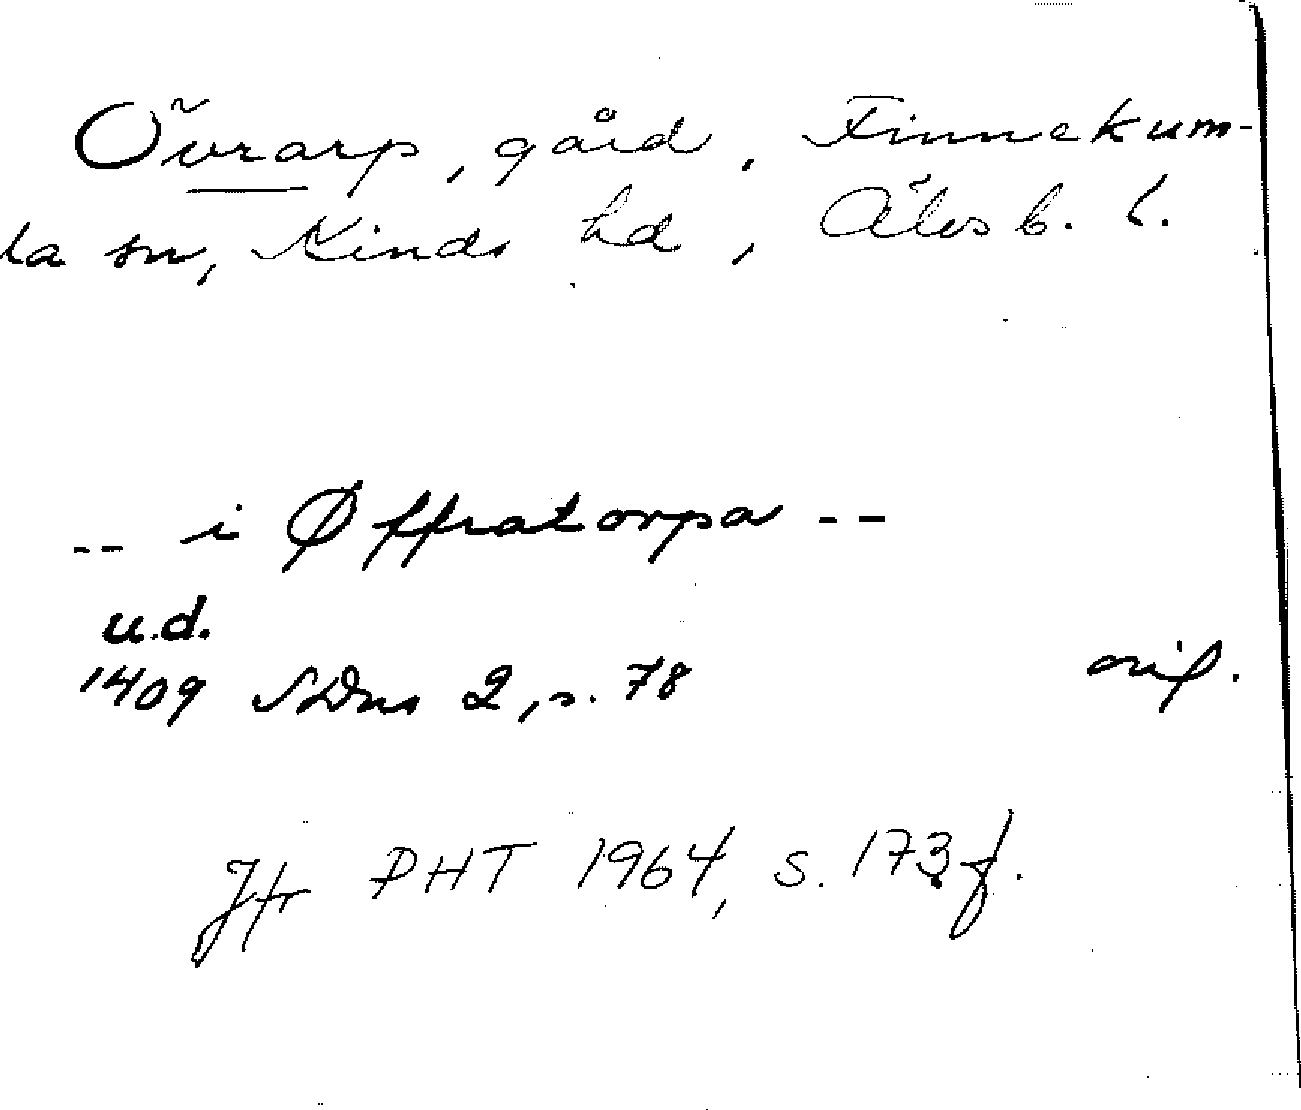 Övrarp, gård, Finnekum-
la sn, Kinds hd, Älvsb. l.
-- i Øffratorpa --
u.d.
1409 SDns 2, s. 78 orig.
Jfr PHT 1964, s. 173 f.